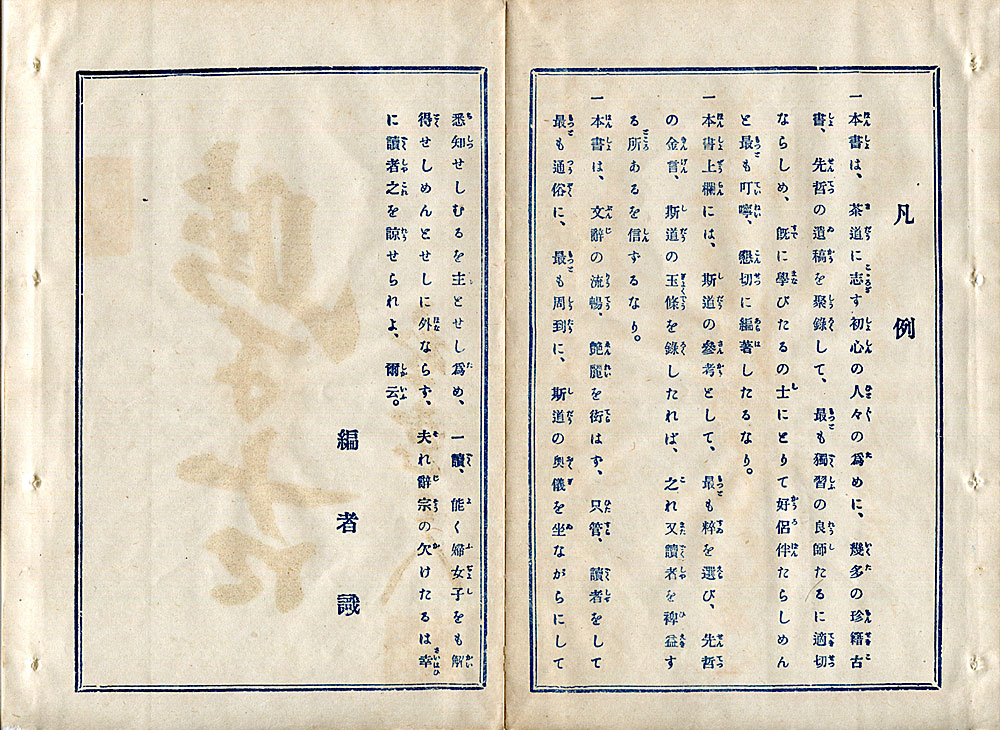 凡例
一本書は、茶道に志す初心の人々の爲めに、幾多の珍籍古
書、先哲の遺稿を聚錄して、最も獨習の良師たるに適切
ならしめ、既に學びたるの士にとりて好侶伴たらしめん
と最も叮嚀、懇切に編著したるなり。
一本書上欄には、斯道の參考として、最も粹を選び、先哲
の金言、斯道の玉條を錄したれば、之れ又讀者を裨益す
る所あるを信するなり。
一本書は、文辭の流暢、艶麗を衒はず、只管、讀者をして
最も通俗に、最も周到に、斯道の奧儀を坐ながらにして
悉知せしむるを主とせし爲め、一讀、能く婦女子をも解
得せしめんとせしに外ならず、夫れ辭宗の欠けたるは幸
に讀者之を諒せられよ、爾云。
編者識